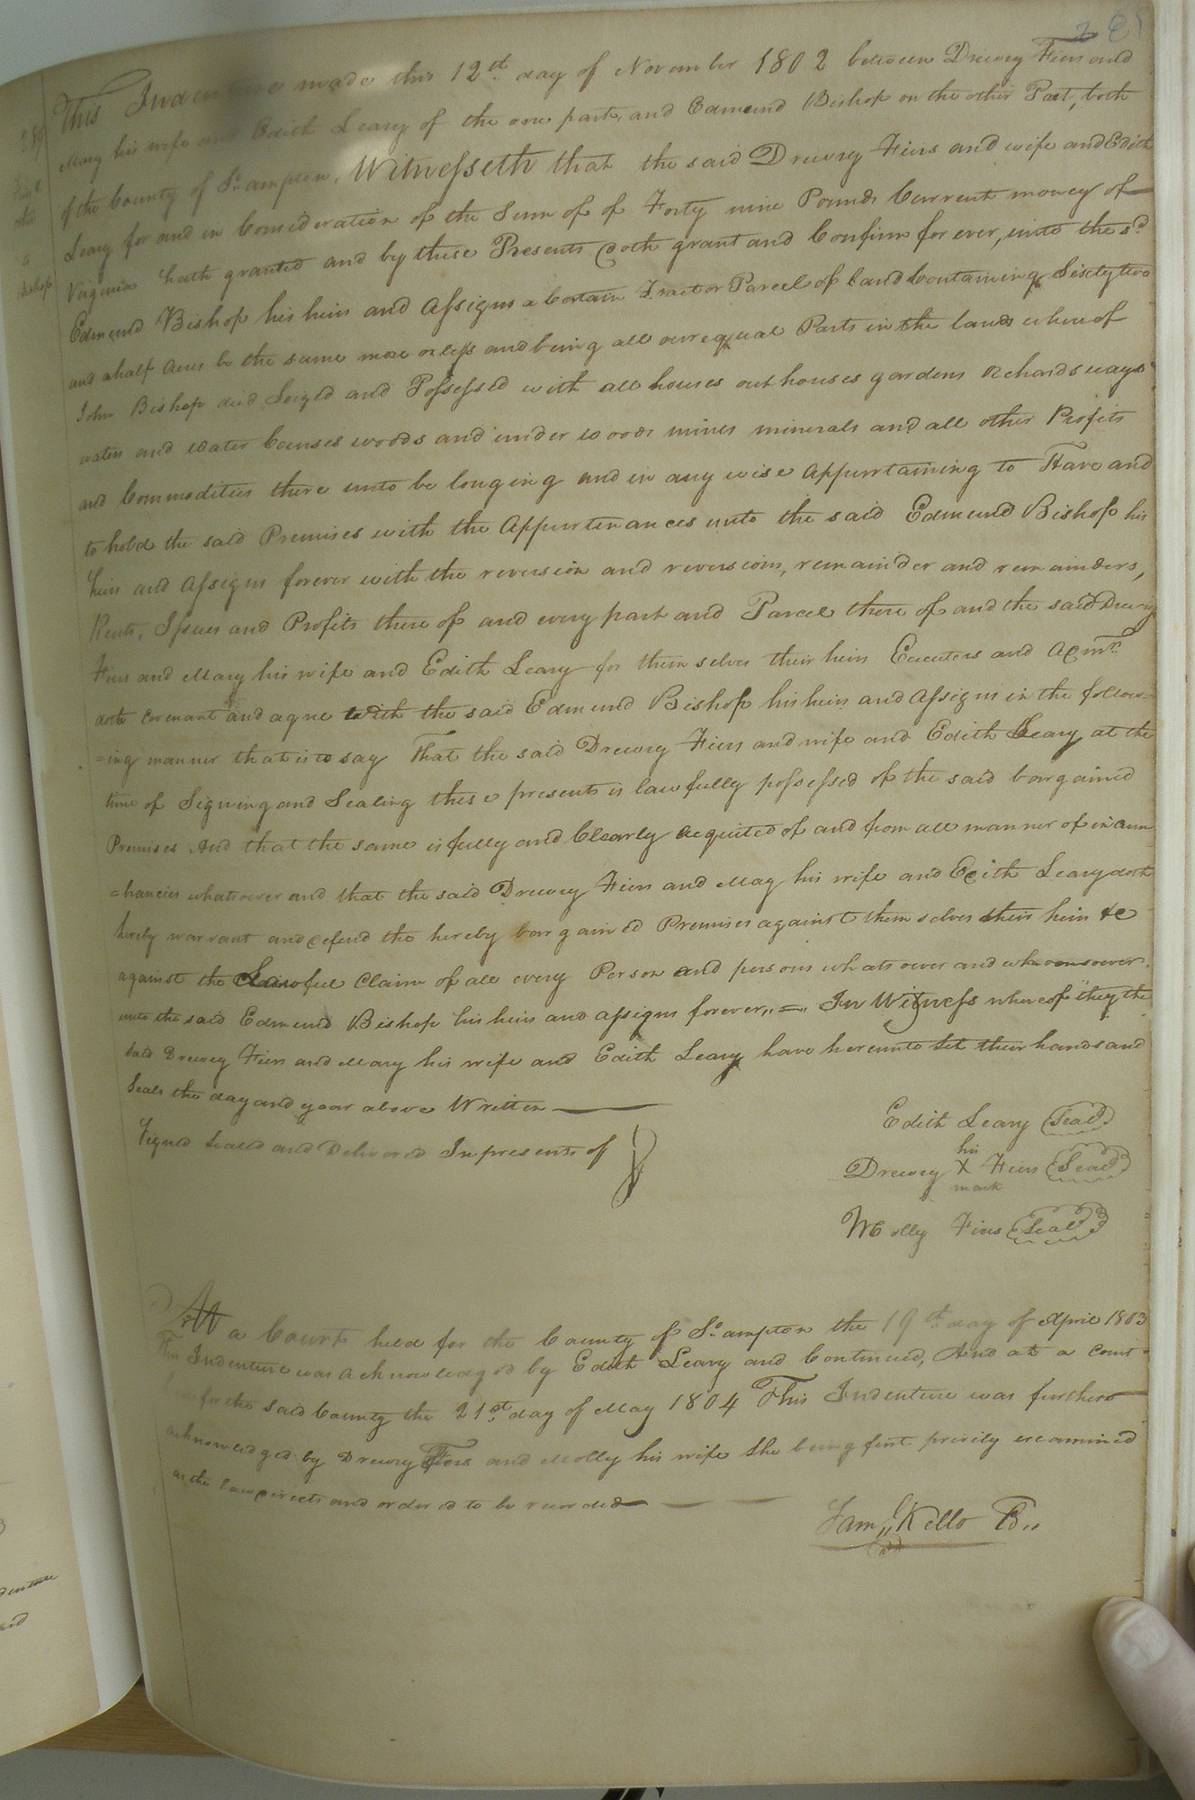 This Indenture made this 12th day of November 1802 between Drewry Fiers and
Mary his wife and Edith Leary of the one part, and Edmund Bishop on the other Part, both
of the County of So. ampton, Witnesseth that the said Drewry Fiers and wife and Edith
Leary for and in Consideration of the Sum of of Forty nine Pounds Current money of
Virginia hath granted and by these Presents doth grant and Confirm for ever, unto the sd.
Edmund Bishop his heirs and Assigns a Certain Tract or Parcel of land Containing Sixty two
and a half Acres be the same more or less and being all our equal Parts in the lands where of
John Bishop died Seized and Possessed with all houses out houses gardens Orchards ways
waters and water Causes woods and under woods mines minerals and all other Profits
and Commodities there unto be longing and in any wise Appurtaining to Have and
to hold the said Premises with the Appurtenances unto the said Edmund Bishop his
heirs and Assigns forever with the reversion and reversions, remainder and remainders,
Rents, Issues and Profits there of and every part and Parcel there of and the said Drewry
Fiers and Mary his wife and Edith Leary for them selves their heirs Executors and Admrs.
doth covenant and agree with the said Edmund Bishop his heirs and Assigns in the follow-
=ing manner that is to say That the said Drewry Fiers and wife and Edith Leary at the
time of Signing and Sealing these presents is lawfully possessed of the said bargained
Premises And that the same is fully and Clearly acquited of and from all manner of incum
=brancies whatsoever and that the said Drewry Fiers and May his wife and Edith Leary doth
hereby warrant and defend the hereby bargained Premises against them selves their heirs &c
against the Lawful Claim of all every Person and persons whatsoever and whomsoever
unto the said Edmund Bishop his heirs and assigns forever,, =, In Witness whereof they the
said Drewry Fiers and Mary his wife and Edith Leary have hereunto Set their hands and
Seals the day and year above Written
Signed Sealed and Delivered In presents of
Edith Leary (Seal)
his
Drewry X Fiers (Seal)
mark
Molly Fiers (Seal)
At a Court held for the County of So. ampton the 19th day of April 1803
This Indenture was Acknowledged by Edith Leary and Continued, And at a Court
for the said County the 21st day of May 1804 This Indenture was further
acknowledged by Drewry Fiers and Molly his wife She being first privily examined
as the law directs and ordered to be recorded
Sam,, Kello C,,